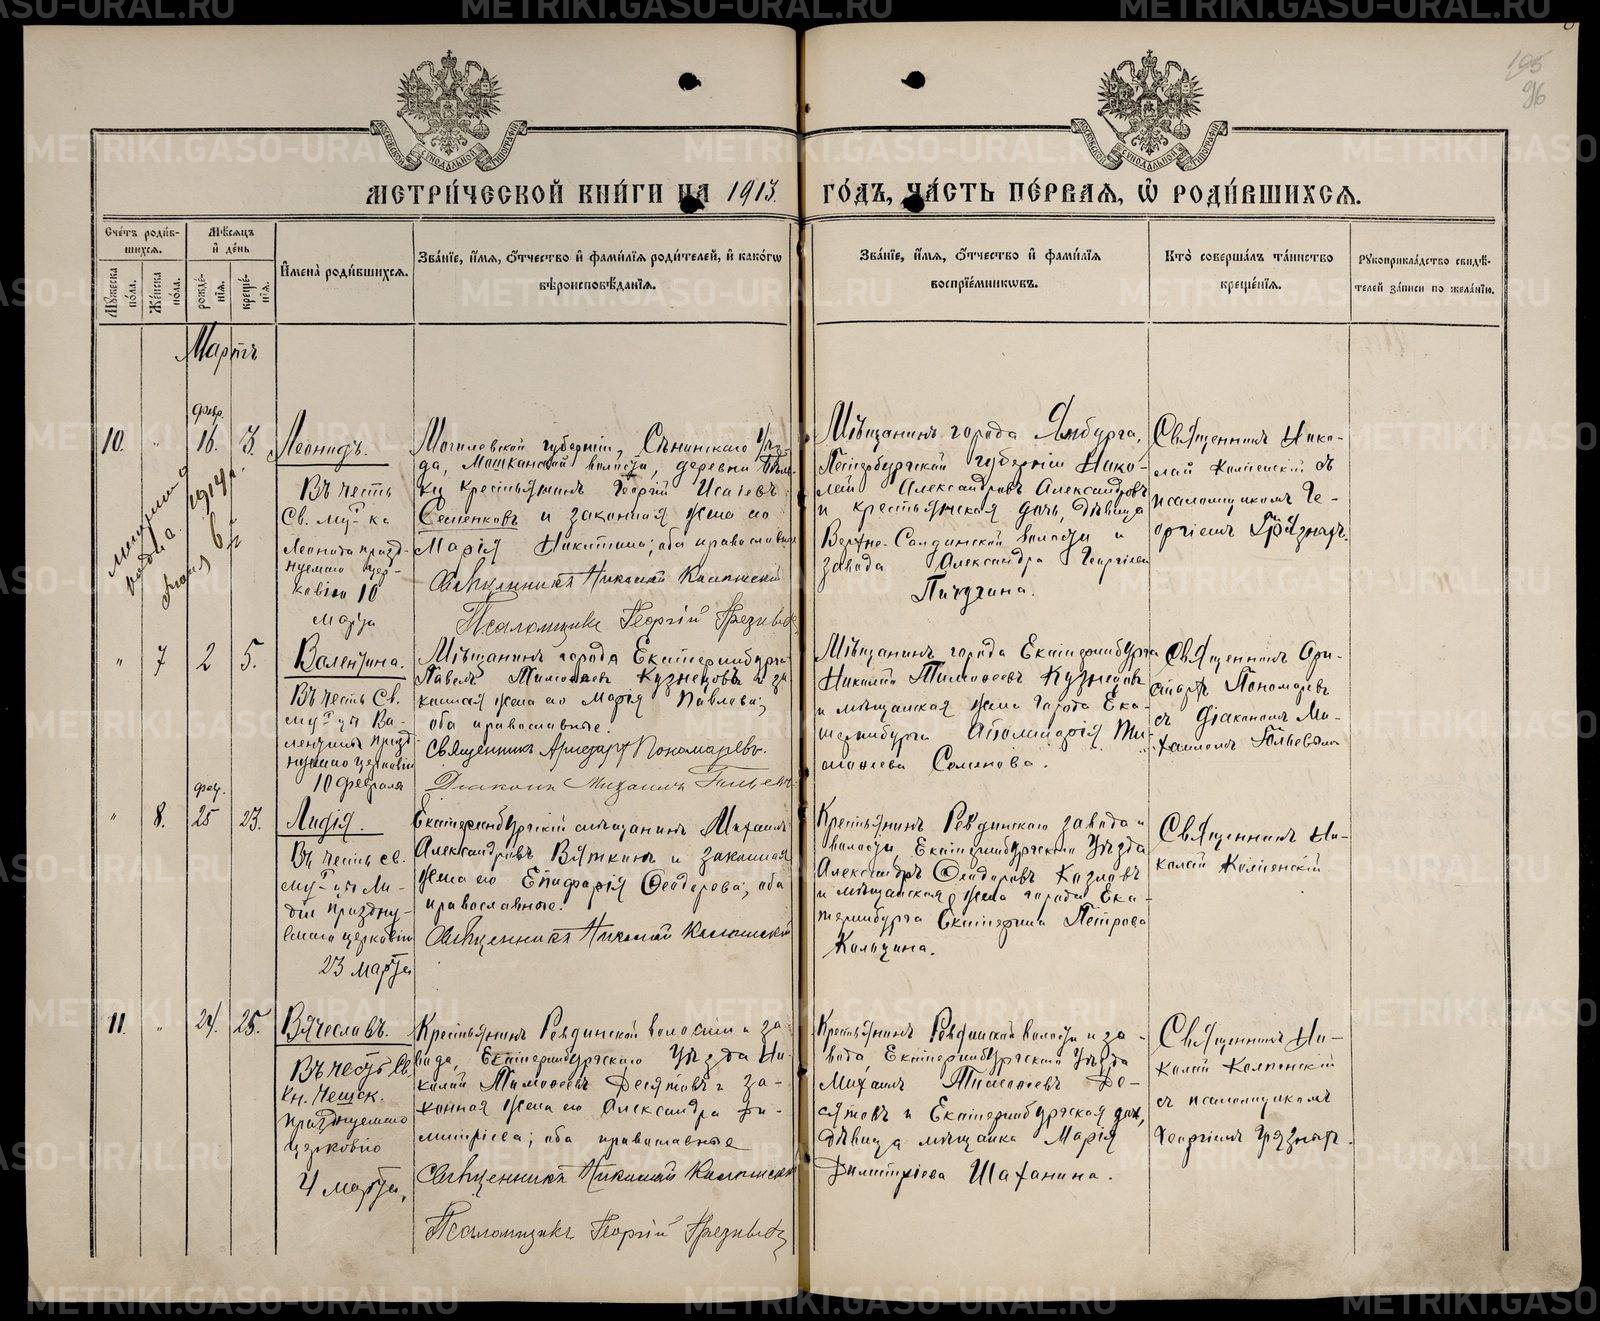 195
96
МОСКОВСКОЙ СѴНОДАЛЬНОЙ ТИПОГРАФІИ
МОСКОВСКОЙ СѴНОДАЛЬНОЙ ТИПОГРАФІИ
МЕТРИ́ЧЕСКОЙ КНИ́ГИ НА 1913. ГО́ДЪ, ЧА́СТЬ ПЕ́РВАЯ, Ѡ РОДИ́ВШИХСЯ.
Сче́тъ роди́в-
шихся.
Мѣ́сяцъ
и де́нь
Му́жеска по́ла.
Же́нска по́ла.
рожде́-
нія.
креще́-
нія.
И҆мена̀ роди́вшихся.
Зва́нїе, и҆́мя, о҆́тчество и҆ фами́лїя роди́телей, и҆ како́гѡ
вѣроисповѣ́данїя.
Зва́нїе, и҆́мя, о҆́тчество и҆ фами́лїя
воспрїе́мникѡвъ.
Кто̀ соверша́лъ та́инство
креще́нїя.
Рукоприкла́дство свидѣ́-
телей за́писи по жела́нїю.
Мартъ
февр.
10. " 16. 3. Леонидъ.
Въ честь
Св. муч-ка
Леонида празд-
нуемаго цер-
ковію 10
марта
Могилевской губерніи, Сѣнинскаго Уѣз-
да, Мошканской волости, деревни
крестьянинъ Георгій Исаіевъ
Семенковъ и законная жена его
Марія Никитина; оба православные
Священникъ Николай
Псаломщикъ Георгій Грязныхъ
Мѣщанинъ города Ямбурга,
Петербургской губерніи Нико-
лай Александровъ Александровъ
и крестьянская дочь, дѣвица
Верхне-Салдинской волости и
завода Александра Георгіева
Пичугина.
Священникъ Нико-
лай съ
псаломщикомъ Ге-
оргіемъ Грязныхъ.
1914 г.
" 7 2 5. Валентина.
Въ честь Св.
муч-цы Ва-
лентины празд-
нуемаго церковію
10 февраля
Мѣщанинъ города Екатеринбурга
Павелъ Тимофеевъ Кузнецовъ и за-
конная жена его Марія Павлова;
оба православные.
Священникъ Аристархъ Пономаревъ.
Діаконъ Михаилъ
Мѣщанинъ города Екатеринбурга
Николай Тимофеевъ Кузнецовъ
и мѣщанская жена города Ека-
теринбурга Аполинарія Ти-
мофеева Семенова.
Священникъ Ари-
стархъ Пономаревъ
съ діакономъ Ми-
хаиломъ
фев.
" 8. 25 23. Лидія.
Въ честь св.
муч-цы Ли-
діи праздну-
емаго церковію
23 марта
Екатеринбургскій мѣщанинъ Михаилъ
Александровъ Вяткинъ и законная
жена его Епифарія Ѳеодорова; оба
православные.
Священникъ Николай
Крестьянинъ Ревдинскаго завода и
волости, Екатеринбургскаго Уѣзда
Александръ Ѳеодоровъ Козловъ
и мѣщанская жена города Ека-
теринбурга Екатерина Петрова
Кальцина.
Священникъ Ни-
колай
11. " 24. 25. Вячеславъ.
Въ честь Св.
Кн. Чешск.
празднуемаго
церковію
4 марта,
Крестьянинъ Ревдинской волости и за-
вода, Екатеринбургскаго Уѣзда Ни-
колай Тимофеевъ Десятовъ и за-
конная жена его Александра Ди-
митріева; оба православные
Священникъ Николай
Псаломщикъ Георгій Грязныхъ
Крестьянинъ Ревдинской волости и за-
вода Екатеринбургскаго Уѣзда
Михаилъ Тимофеевъ Де-
сятовъ и Екатеринбургская доч,
дѣвица мѣщанка Марія
Димитріева Шаханина.
Священникъ Ни-
колай
съ псаломщикомъ
Георгіемъ Грязныхъ.
METRIKI.GASO-URAL.RU